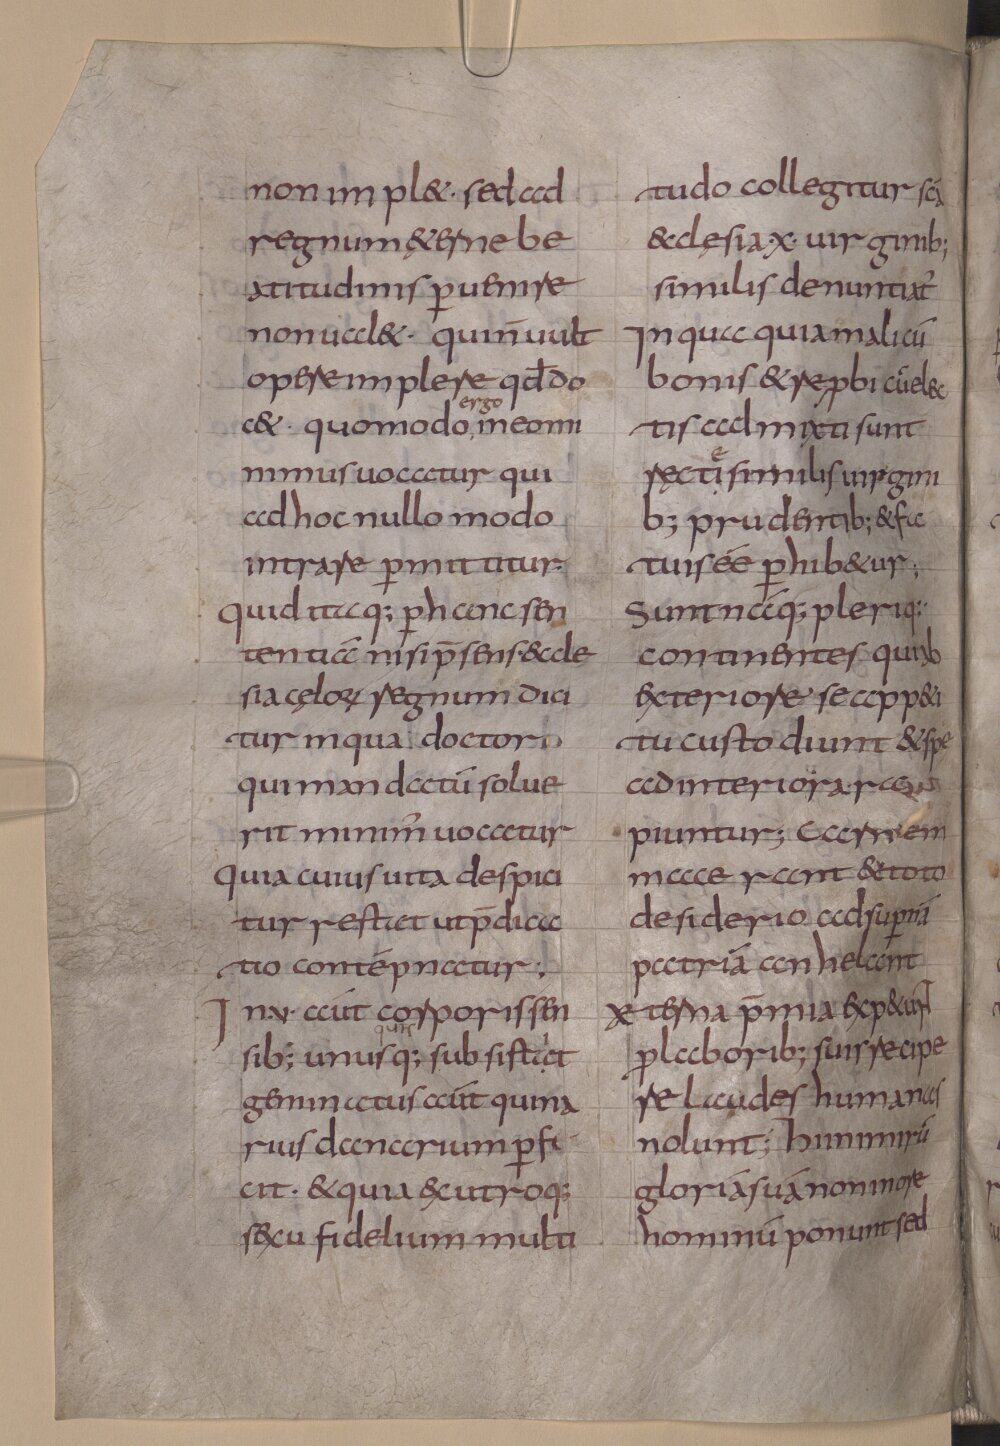 non impl&· sed ad
regnum &ernę be
atitudinis p̱uenire
non ual&· quin̄ uult
opere implere qđ do
c&· quomodo ergo in eo mi
nimus uocatur qui
ad hoc nullo modo
intrare p̱mittitur·
Quid itaq; p̱ hanc sen
tentiā nisi p̄sens &ccle
sia cęloꝝ regnum dici
tur in qua doctor
qui mandatū solue
rit minim̄ uocatur
Quia cuius uita despici
tur restat ut p̄dica
tio contēpnatur;
In v· aūt corporis sen
sib; unus quis q; subsistit
geminatus aūt quina
rius denarium p̱fi
cit· & quia &x utroq;
s&xu fidelium multi
tudo collegitur scā
&cclesia· x· uirginib;
similis denuntiat̃
In qua quia mali cū
bonis & rep̱bi cū elec
tis ad mixti sunt
rectę similis uirgini
b; prudentib; & fa
tuis éé p̱hib&ur;
Sunt nāq; pleriq;
continentes quib
&xteriore se app&i
tu custodiunt & spe
ad interiora ra
piuntur; Carnem
macerant & toto
desiderio ad sup̱nā
patriā anhelant
&terna p̄mia &xp&unt
p̱ laborib; suis recipe
re laudes humanas
nolunt; Hi nimirū
gloriā suā non in ore
hominū ponunt sed